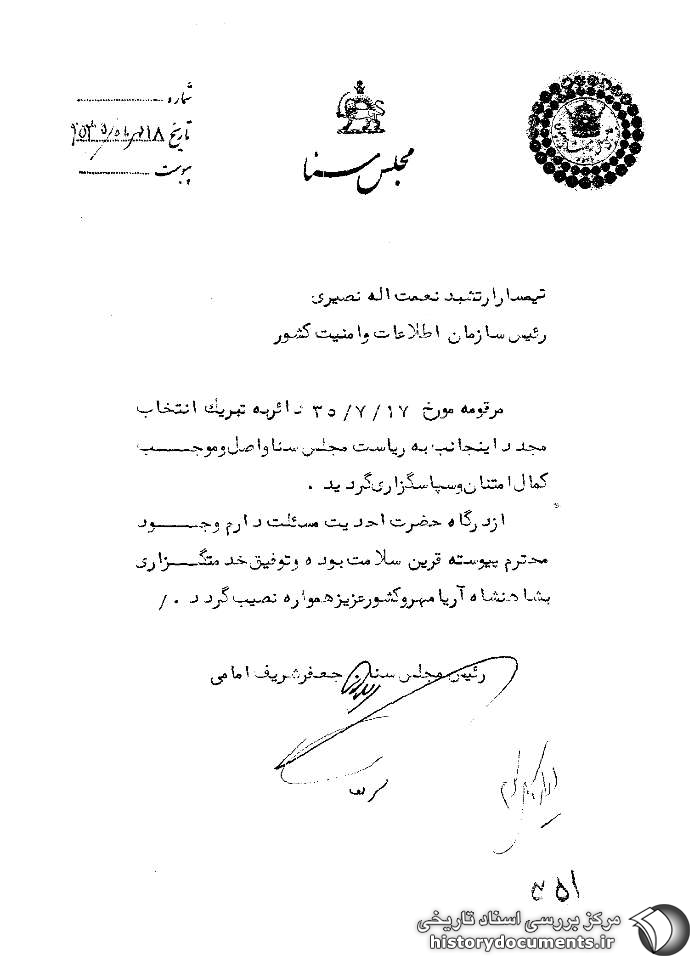 شماره
تاریخ ۱۸
پیوست
مجلس سنا
تیمسار ارتشبد نعمت اله نصیری
رئیس سازمان اطلاعات و امنیت کشور
مرقومه مورخ ۳۵/۷/۱۷ دائر به تبریک انتخاب
مجدد اینجانب به ریاست مجلس سنا واصل و موجب
کمال امتنان و سپاسگزاری گردید .
از درگاه حضرت احدیت مسئلت دارم وجود
محترم پیوسته قرین سلامت بوده و توفیق خدمتگزاری
بشاهنشاه آریامهر و کشور عزیز همواره نصیب گردد ./
رئیس مجلس سنا جعفر شریف امامی
۳۵۱
مرکز بررسی اسناد تاریخی
historydocuments.ir